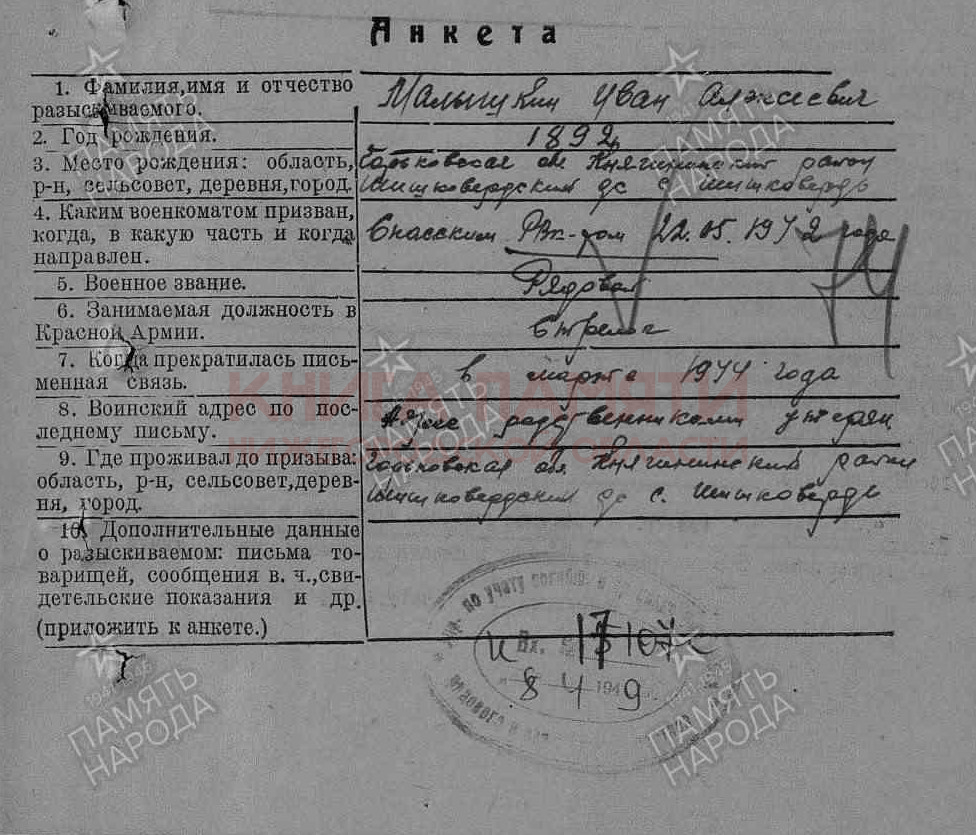 Анкета
1. Фамилия, имя и отчество
разыскиваемого.
Малышкин Иван Алексеевич
2. Год рождения.
1892 г.
3. Место рождения: область,
р-н, сельсовет, деревня, город.
Горьковская обл Княгининский район
Шишковердский с/с с. Шишковердь
4. Каким военкоматом призван,
когда, в какую часть и когда
направлен.
Спасским РВк-том 22.05.1942 года
5. Военное звание.
Рядовой
6. Занимаемая должность в
Красной Армии.
Стрелок
7. Когда прекратилась пись-
менная связь.
в марте 1944 года
8. Воинский адрес по пос-
леднему письму.
Адрес родственниками утерян
9. Где проживал до призыва:
область, р-н, сельсовет, дерев-
ня, город.
Горьковская обл. Княгининский район
Шишковердский с/с с. Шишковердь
10. Дополнительные данные
о разыскиваемом: письма то-
варищей, сообщения в. ч., сви-
детельские показания и др.
(приложить к анкете.)
по учету погибш.
Вх.
8 4 1949
КНИГА ПАМЯТИ
НИЖЕГОРОДСКОЙ ОБЛАСТИ
ПАМЯТЬ
НАРОДА